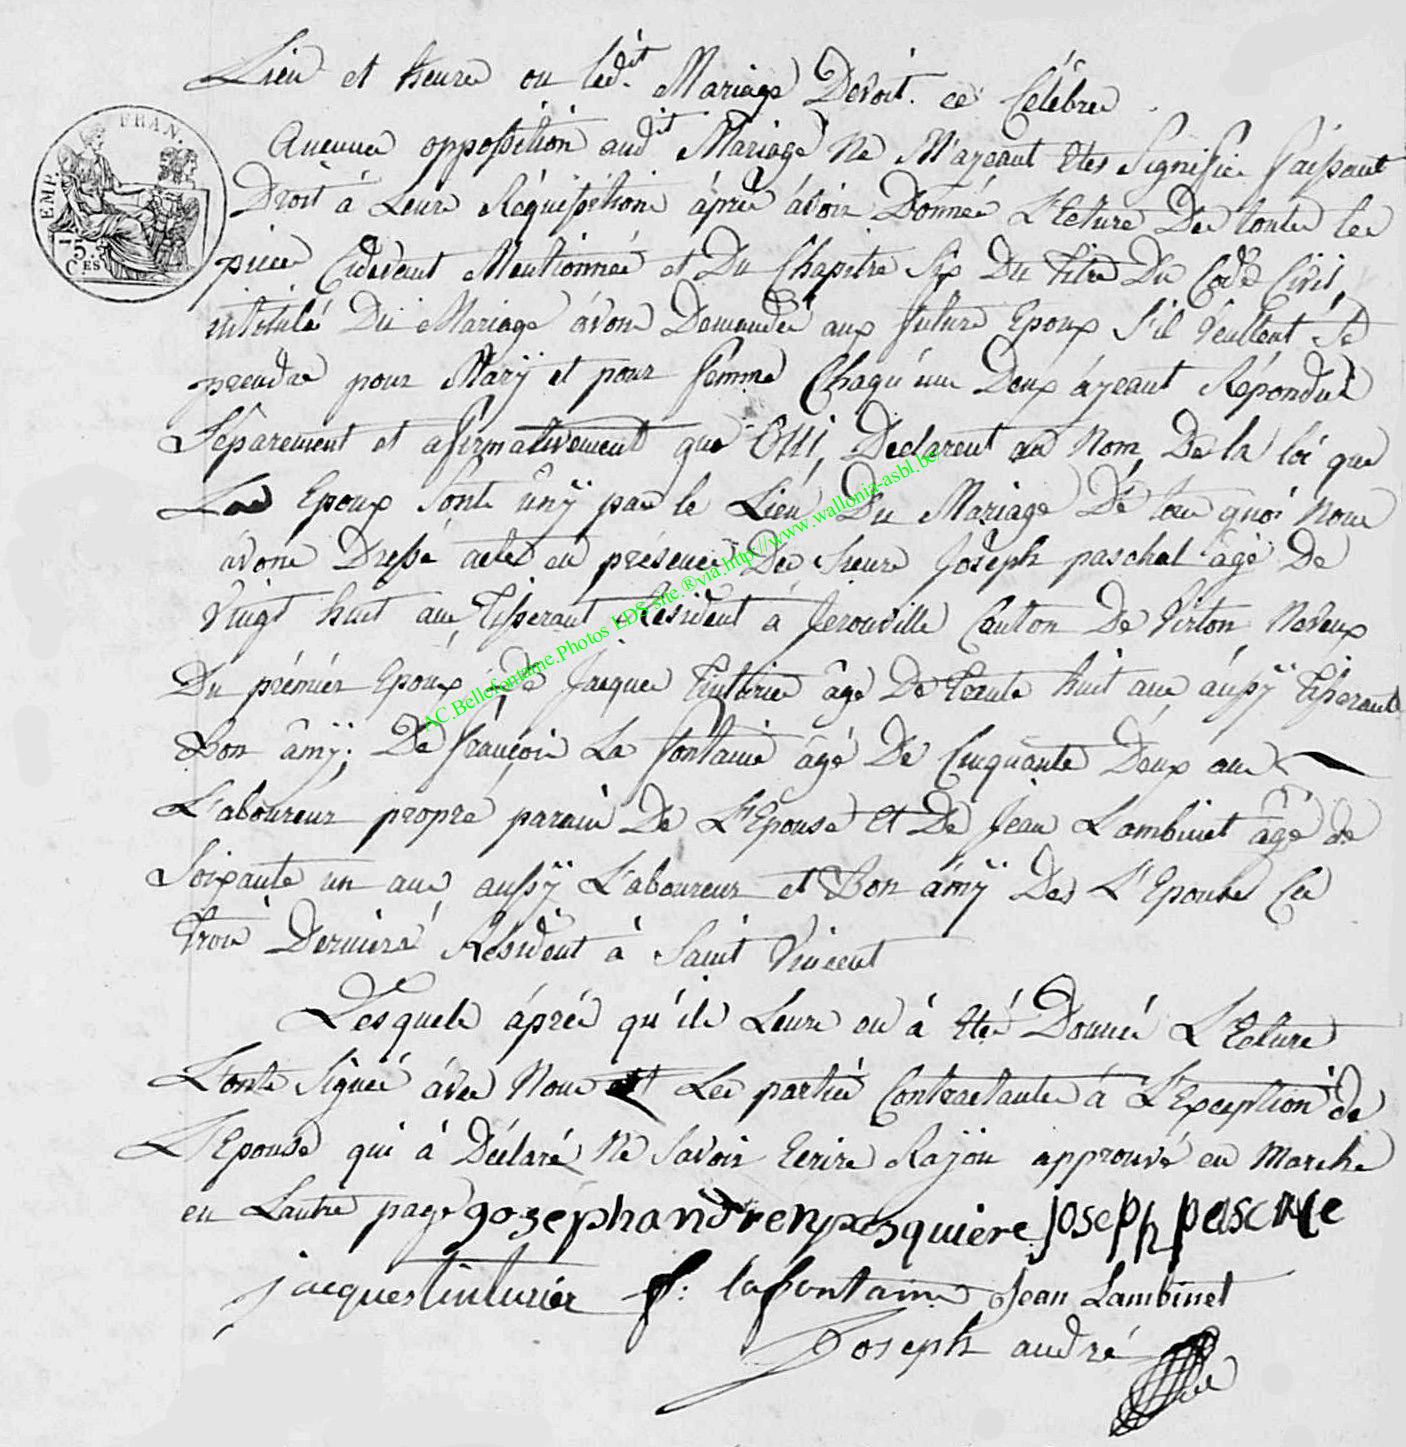 Lieu et heure ou ledit Mariage Devoit ce Célébrer
Aucune opposition audit Mariage Ne M'ayeant Etes Signifié faisant
Droit à Leur Réquisition áprés ávoir Donnée L'Ecture De toute les
piece Cidevant Mentionnée et Du Chapitre Six Du titre Du Code Civil
intitulé Du Mariage ávons Demandée aux futurs Epoux S'il Veullent Se
prendre pour Marÿ et pour femme Chaqu'un Deux áyeant Répondus
Séparement et afirmativement que Oui, Declarent au Nom De la loi que
Les Epoux Sont ûnÿ par le Lien Du Mariage De tous quoi Nous
ávons Dressé acte en présence De Sieur Joseph paschal âgé De
Vingt huit ans Tisserant Résident à Jerouville Canton De Virton Neveux
Du prémier Epoux, De Jacque Tinturier âgé De trente huit ans áussÿ Tisserant
Bon âmÿ; De françois La fontaine âgé De Cinquante Deux ans
L'aboureur propre parain De L'Epouse et De Jean Lambinet âgé de
Soixante un ans aussÿ L'aboureur et Bon âmÿ Des L'Epouse Ces
trois Derniers Résident à Saint Vincent
Lesquels áprés qu'ils Leurs en à Eté Donnée L'Ecture
L'onts Signée ávec Nous et Les parties Contractantes à L'Exception de
L'Epouse qui à Déclaré Ne Savoir Ecrire Rajou approuvé en Marche
en Lautre page josephandrenpasquiere joseph pascale
jacques tinturier f: lafontaine Jean Lambinet
Joseph andré
EMP. FRAN.
75.
CES
AC.Bellefontaine.Photos EDS-site.®via.http://www.wallonia-asbl.be